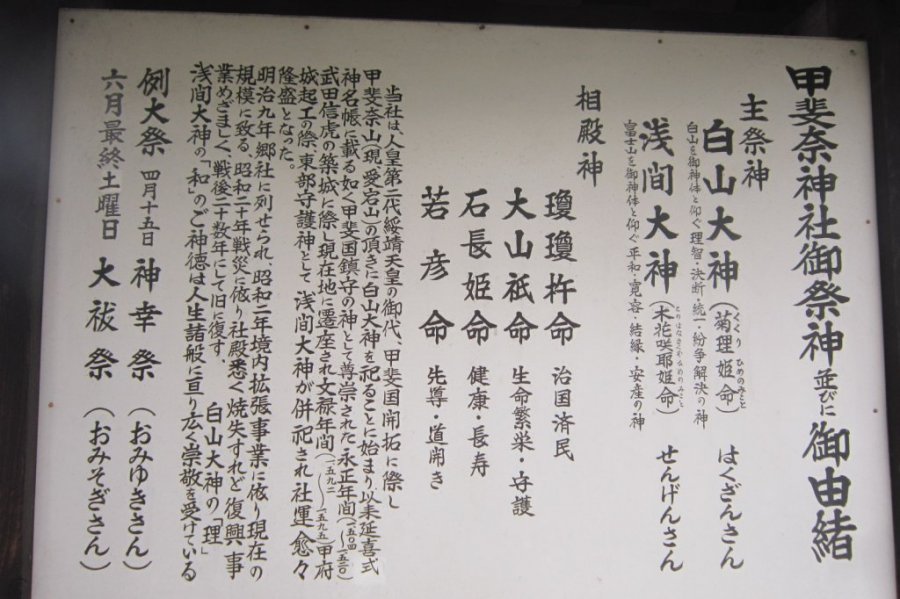 甲斐奈神社御祭神並びに御由緒
主祭神
白山大神(菊理姫命)はくさんさん
くくりひめのみこと
白山を御神体と仰ぐ理智・決断・統一・紛争解決の神
浅間大神(木花咲耶姫命)せんげんさん
このはなさくやひめのみこと
富士山を御神体と仰ぐ平和・寛容・結縁・安産の神
相殿神
瓊瓊杵命 治国済民
大山祇命 生命繁栄・守護
石長姫命 健康・長寿
若彦命 先導・道開き
当社は、人皇第二代綏靖天皇の御代、甲斐国開拓に際し
甲斐奈山(現愛宕山)の頂きに白山大神を祀ることに始まり、以来延喜式
神名帳に載る如く甲斐国鎮守の神として尊崇された。永正年間(一五〇四〜一五二〇)
武田信虎の築城に際し現在地に遷座され文禄年間(一五九二〜一五九五)甲府
城起工の際、東部守護神として、浅間大神が併祀され社運愈々
隆盛となった。
明治九年郷社に列せられ、昭和二年境内拡張事業に依り現在の
規模に致る。昭和二十年戦災に依り社殿悉く焼失すれど復興事
業めざましく、戦後二十数年にして旧に復す。 白山大神の「理」
浅間大神の「和」のご神徳は人生諸般に亘り広く崇敬を受けている
例大祭 四月十五日 神幸祭(おみゆきさん)
六月最終土曜日 大祓祭(おみそぎさん)